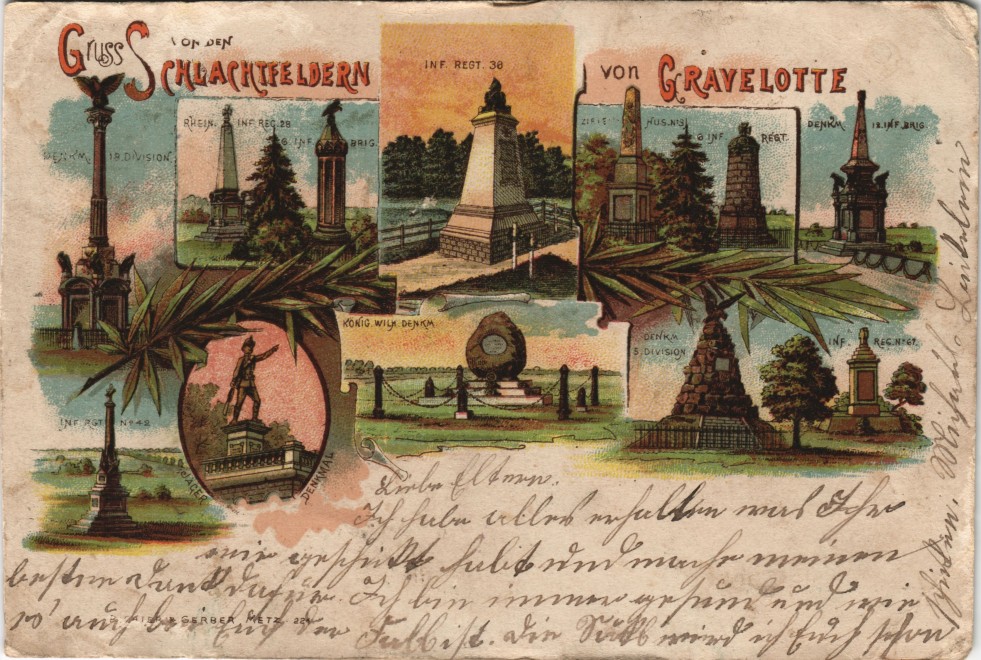 Gruss von den
Schlachtfeldern von Gravelotte
INF. REGT. 36
RHEIN. INF. REG. 28
INF. BRIG.
HUS. Nº 9
INF. REGT.
DENKM. 18. INF. BRIG.
DENKM. 18. DIVISION
KÖNIG WILH. DENKM.
DENKM.
5. DIVISION
INF. REG. Nº 67.
INF. RGT. Nº 42
JÄGER DENKMAL
Liebe Eltern.
Ich habe alles erhalten was Ihr
mir geschickt habt und mache meinen
besten Dank dafür. Ich bin immer gesund und wie
es auch bei Euch der Fall ist. Die wird ich Euch schon
& GERBER METZ. 221